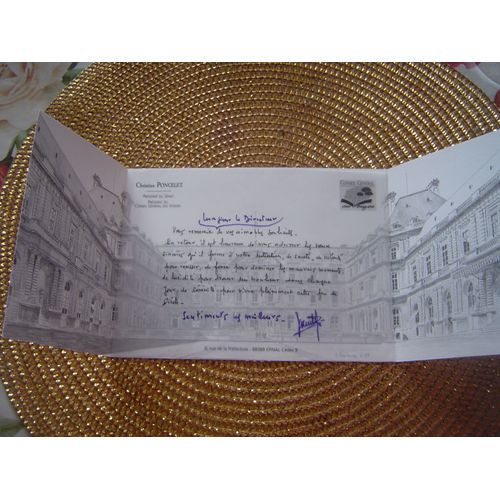 Christian PONCELET
Président du Sénat
Président du
Conseil Général des Vosges
Conseil Général
Monsieur le Directeur
Vous remercie de vos aimables souhaits.
En retour, il est heureux de vous adresser les vœux
sincères qu'il forme à votre intention, de santé, de volonté
pour
de force pour dominer les mauvais moments
de pour trouver du bonheur dans chaque
jour, de pour vivre pleinement cette fin de
siècle.
Sentiments les meilleurs.
8, rue de la Préfecture - 88088 EPINAL CEDEX 9